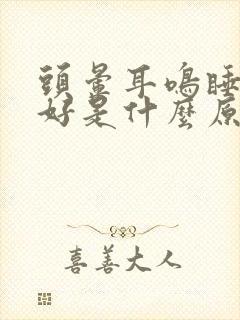 頭暈耳鳴睡
好是什麼原
喜善大人